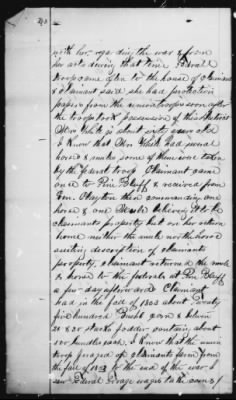 with her, regarding the war & from
her acts during that time. Federal
troops came often to the house of claimant
& claimant said she had protection
papers from the union troops soon after
the troops took possession of this
Mrs White is about sixty years old
I know that Mrs White had several
horses & mules some of them were taken
by the federal troops. Claimant came
once to Pine Bluff & received from
Gen. Clayton then commanding one
horse & one mule believing it to be
claimants property but on her return
home neither the mule nor the horse
description of claimants
property, claimant returned the mule
& horse to the federals at Pine Bluff
a few days afterward Claimant
had in the fall of 1863 about Twenty
five hundred Bushs corn & between
20 & 25 stacks fodder containing about
100 bundles each, I know that the union
troops foraged off claimants farm from the
fall of 1863 to the end of the war. I
saw Federal forage wagons take the corn &